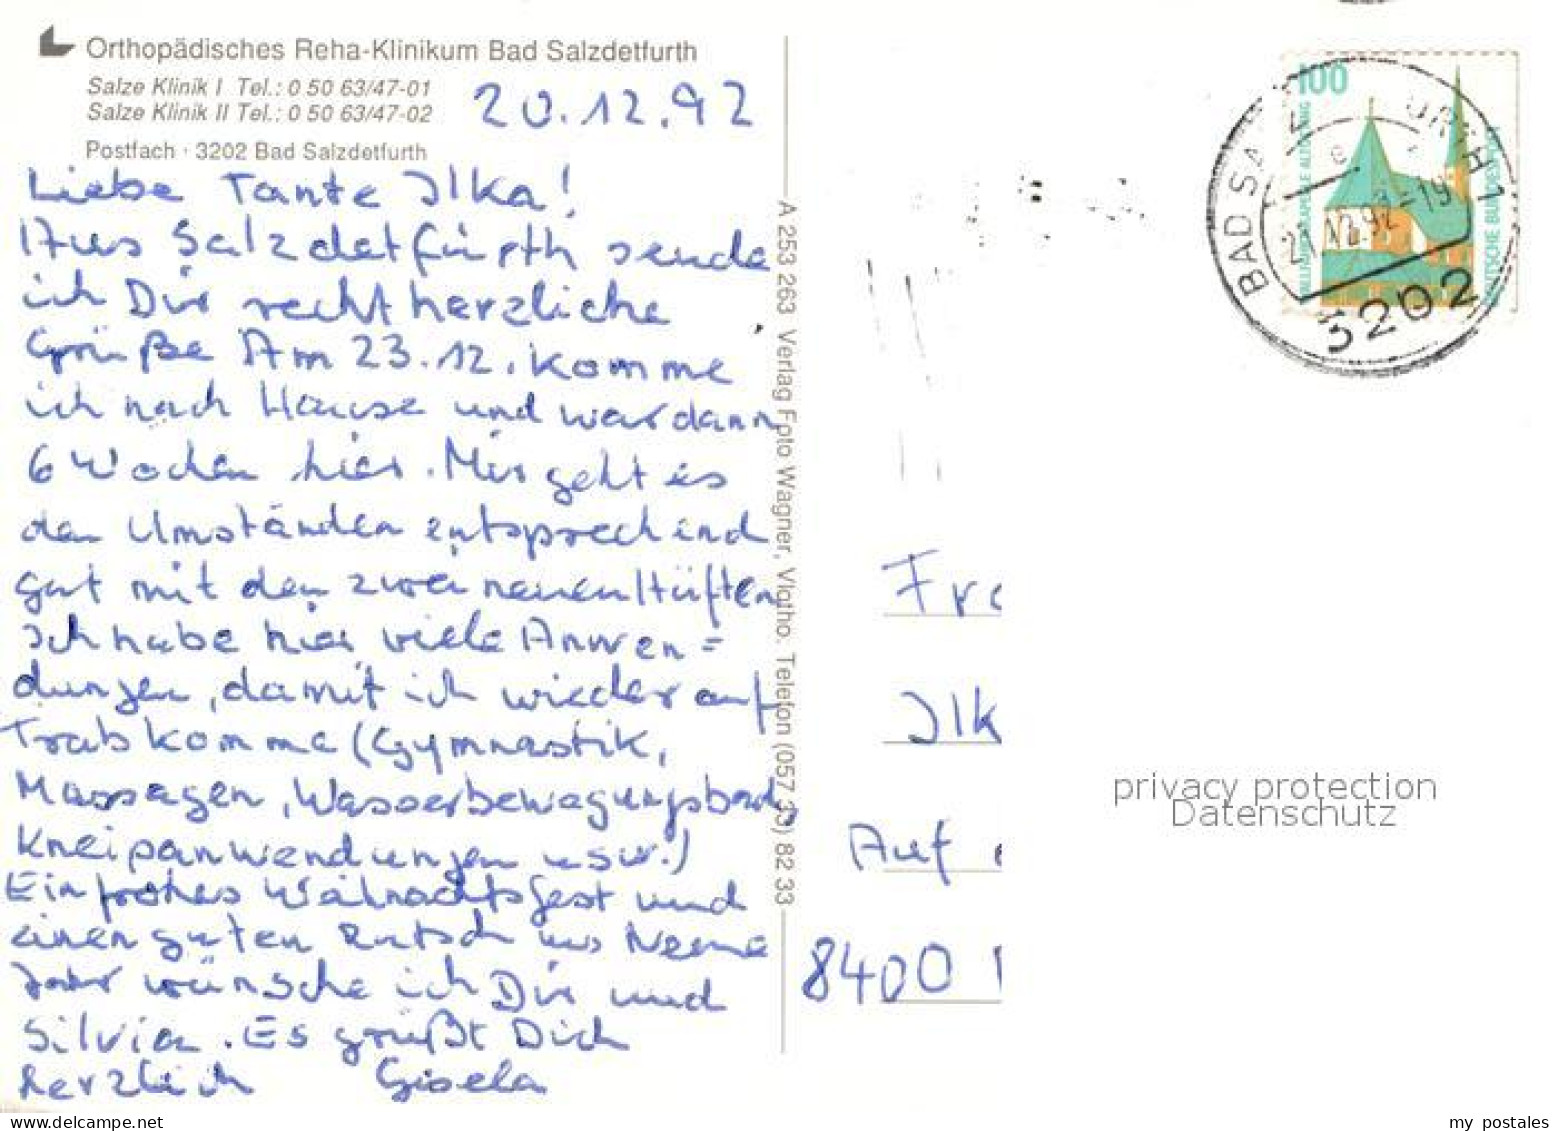 Orthopädisches Reha-Klinikum Bad Salzdetfurth
Salze Klinik I Tel.: 0 50 63/47-01
Salze Klinik II Tel.: 0 50 63/47-02
Postfach · 3202 Bad Salzdetfurth
20.12.92
Liebe Tante Ilka!
Aus Salzdetfürth sende
ich Dir recht herzliche
Grüße Am 23.12. komme
ich nach Hause und war dann
6 Wochen hier. Mir geht es
den Umständen entsprechend
gut mit den zwei neuen Hüften
Ich habe hier viele Anwen=
dungen, damit ich wieder auf
Trab komme (Gymnastik,
Massagen, Wasserbewegungsbad,
Kneipanwendungen usw.)
Ein frohes Weihnachtsfest und
einen guten Rutsch ins Neue
Jahr wünsche ich Dir und
Silvia. Es grüßt Dich
herzlich Gisela
A 253 263 Verlag Foto Wagner, Vlotho. Telefon (057 33) 82 33
100
WALLFAHRTSKAPELLE ALTÖTTING
DEUTSCHE BUNDESPOST
BAD SALZDETFURTH 1
.12.92-19
3202
Fra
Ilk
Auf
8400
privacy protection
Datenschutz
my postales